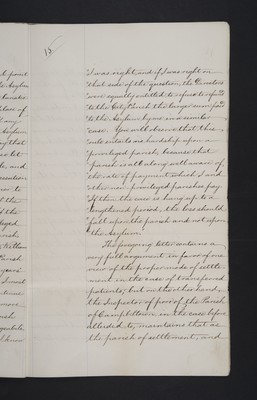 15
"I was right, and if I was right on
"that side of the question the Directors
"were equally entitled to refuse to refund
"to the City Parish the larger sum paid
"to the Asylum by me in a similar
"case. You will observe that this
"rule entails no hardship upon a
"privileged parish, because that
"parish is all along well aware of
"the rate of payment which I and
"other non-privileged parishes pay.
"If then the case is hung up to a
"lengthened period, the loss should
"fall upon the parish and not upon
"the Asylum."
The foregoing letter contains a
very full argument in favor of one
view of the proper mode of settle-
ment in the case of transferred
patients, but on the other hand,
the Inspector of poor of the Parish
of Campbeltown in the case before
alluded to, maintains that as
the parish of settlement, and